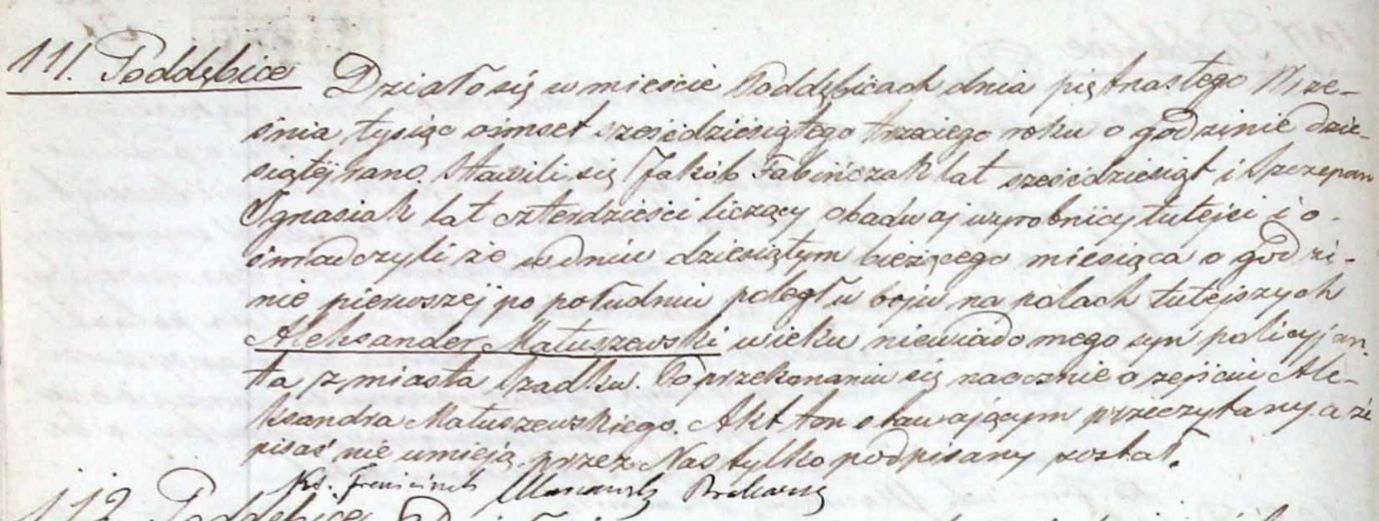 111. Poddębice Działo się w mieście Poddębicach dnia piętnastego Wrze-
śnia tysiąc ośmset sześćdziesiątego trzeciego roku o godzinie dzie-
siątéj rano. Stawili się Jakób Fabińczak lat sześćdziesiąt i Szczepan
Ignasiak lat czterdzieści liczący obadwaj wyrobnicy tutejsi i o-
świadczyli że w dniu dziesiątym bieżącego miesiąca o godzi-
nie pierwszej po południu poległ w boju na polach tutejszych
Aleksander Matuszewski wieku niewiadomego syn policyjan-
ta z miasta Szadku. Po przekonaniu się naocznie o zejściu Ale-
ksandra Matuszewskiego. Akt ten stawającym przeczytany a że
pisać nie umieją przez Nas tylko podpisany został.
112. Poddębice